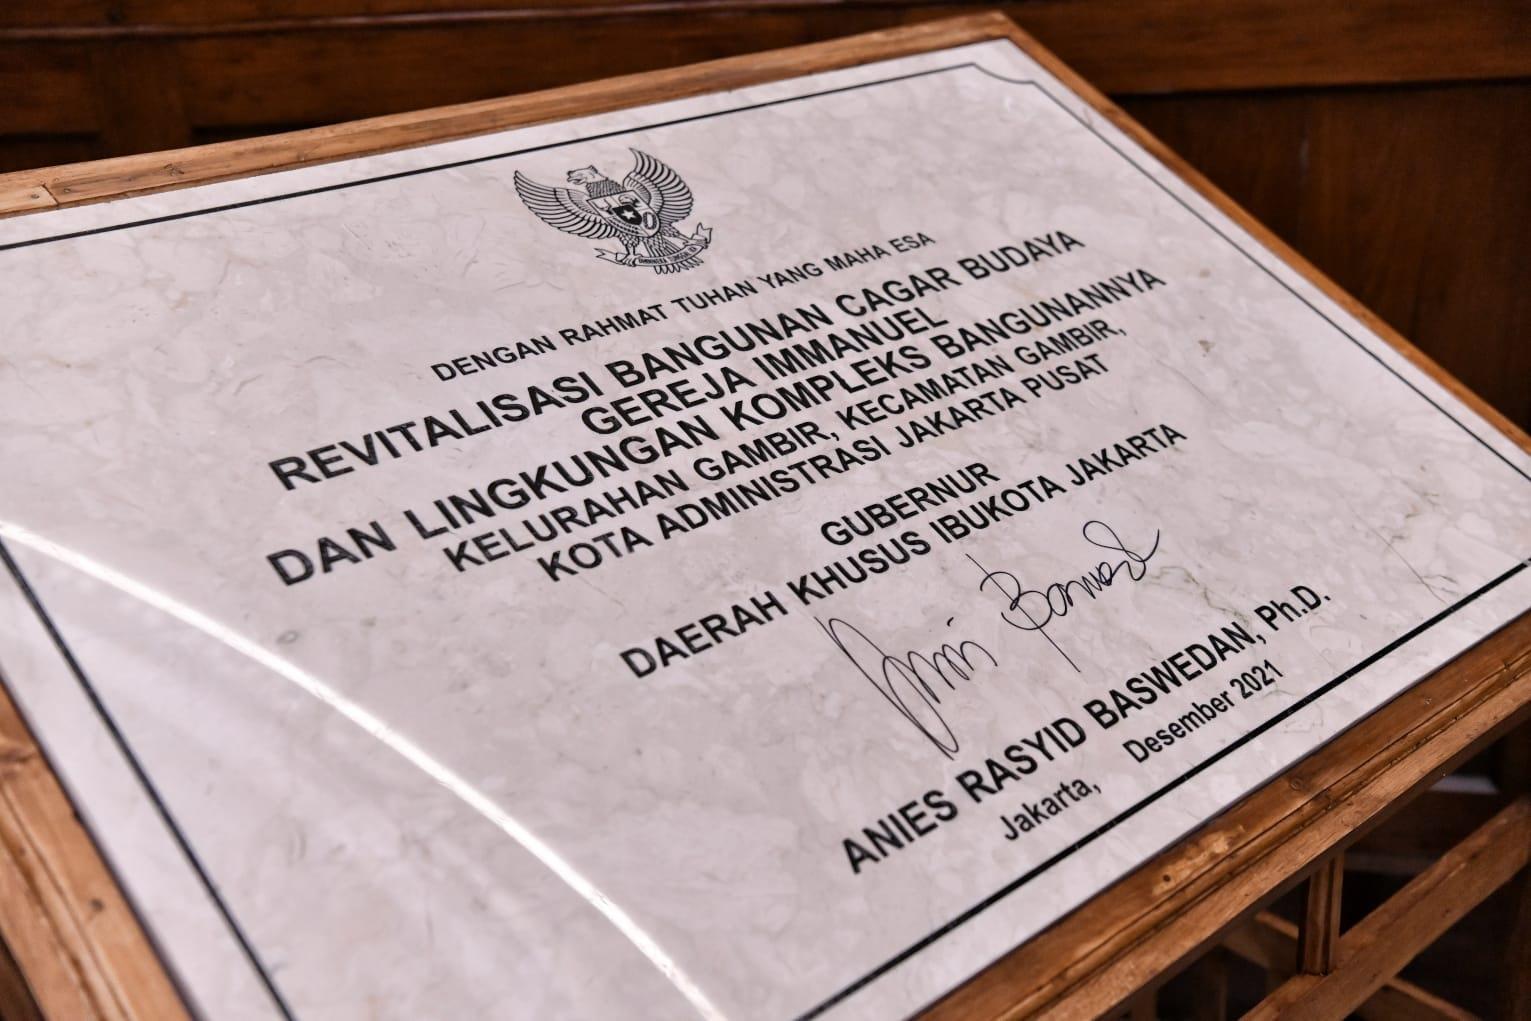 DENGAN RAHMAT TUHAN YANG MAHA ESA
REVITALISASI BANGUNAN CAGAR BUDAYA
GEREJA IMMANUEL
DAN LINGKUNGAN KOMPLEKS BANGUNANNYA
KELURAHAN GAMBIR, KECAMATAN GAMBIR,
KOTA ADMINISTRASI JAKARTA PUSAT
GUBERNUR
DAERAH KHUSUS IBUKOTA JAKARTA
ANIES RASYID BASWEDAN, Ph.D.
Jakarta, Desember 2021